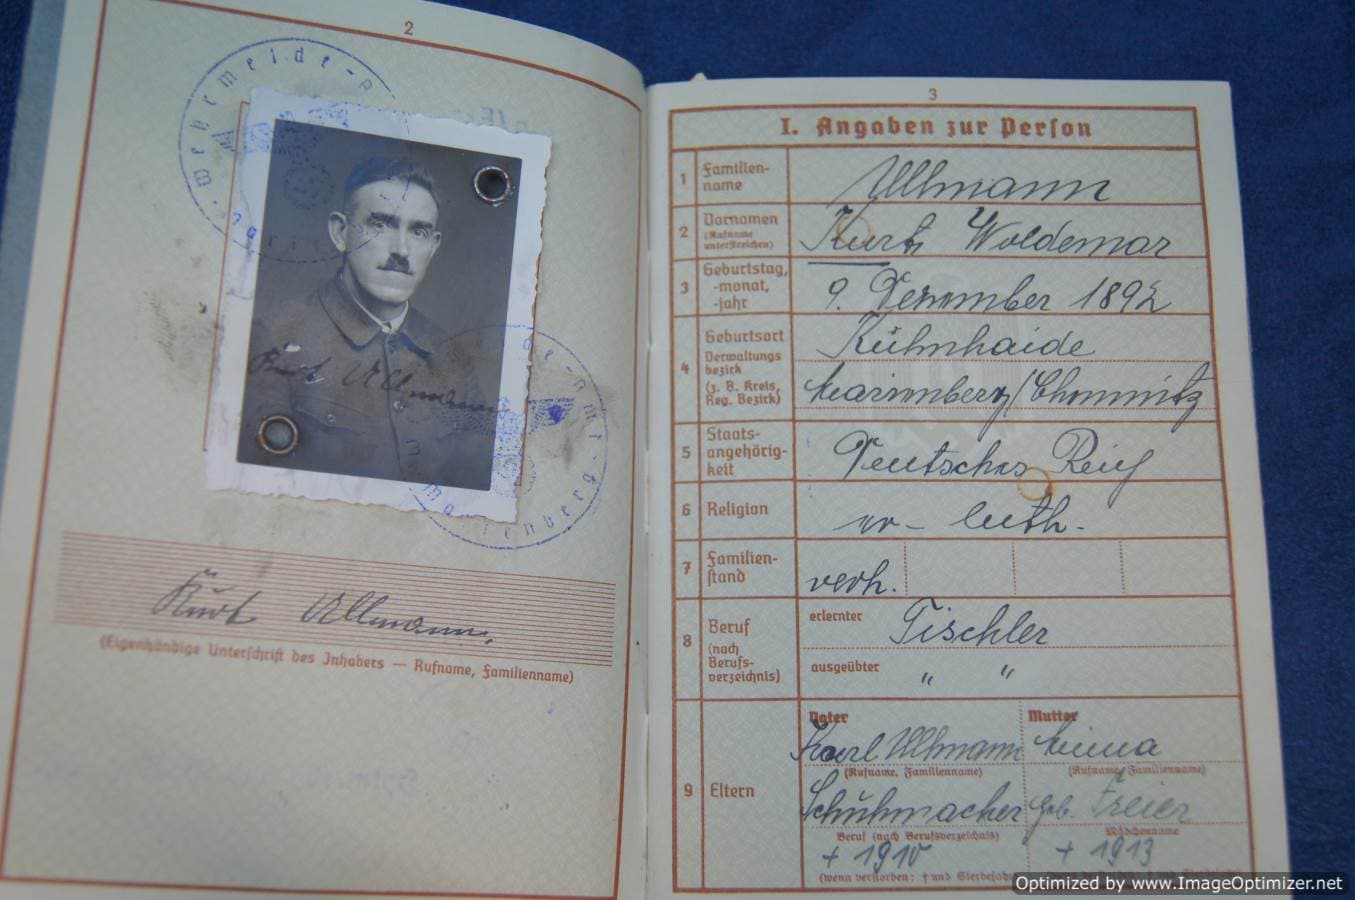 2
Wehrmelde-A
Marienberg
Kurt Ullmann
de-amt
Marienberg
Kurt Ullmann.
(Eigenhändige Unterschrift des Inhabers — Rufname, Familienname)
3
I. Angaben zur Person
1 Familien-
name
Ullmann
2 Vornamen
(Rufname
unterstreichen)
Kurt Woldemar
3 Geburtstag,
-monat,
-jahr
9. Dezember 1892
4 Geburtsort
Verwaltungs
bezirk
(z. B. Kreis,
Reg. Bezirk)
Kühnhaide
Marienberg/Chemnitz
5 Staats-
angehörig-
keit
Deutsches Reich
6 Religion
ev-luth.
7 Familien-
stand
verh.
8 Beruf
(nach
Berufs-
verzeichnis)
erlernter
Tischler
ausgeübter
" "
9 Eltern
Vater
Karl Ullmann
(Rufname, Familienname)
Schuhmacher
Beruf (nach Berufsverzeichnis)
+ 1910
(wenn verstorben: † und Sterbejahr
Mutter
Minna
(Rufname, Familienname)
geb. Freier
Mädchenname
+ 1913
Optimized by www.ImageOptimizer.net